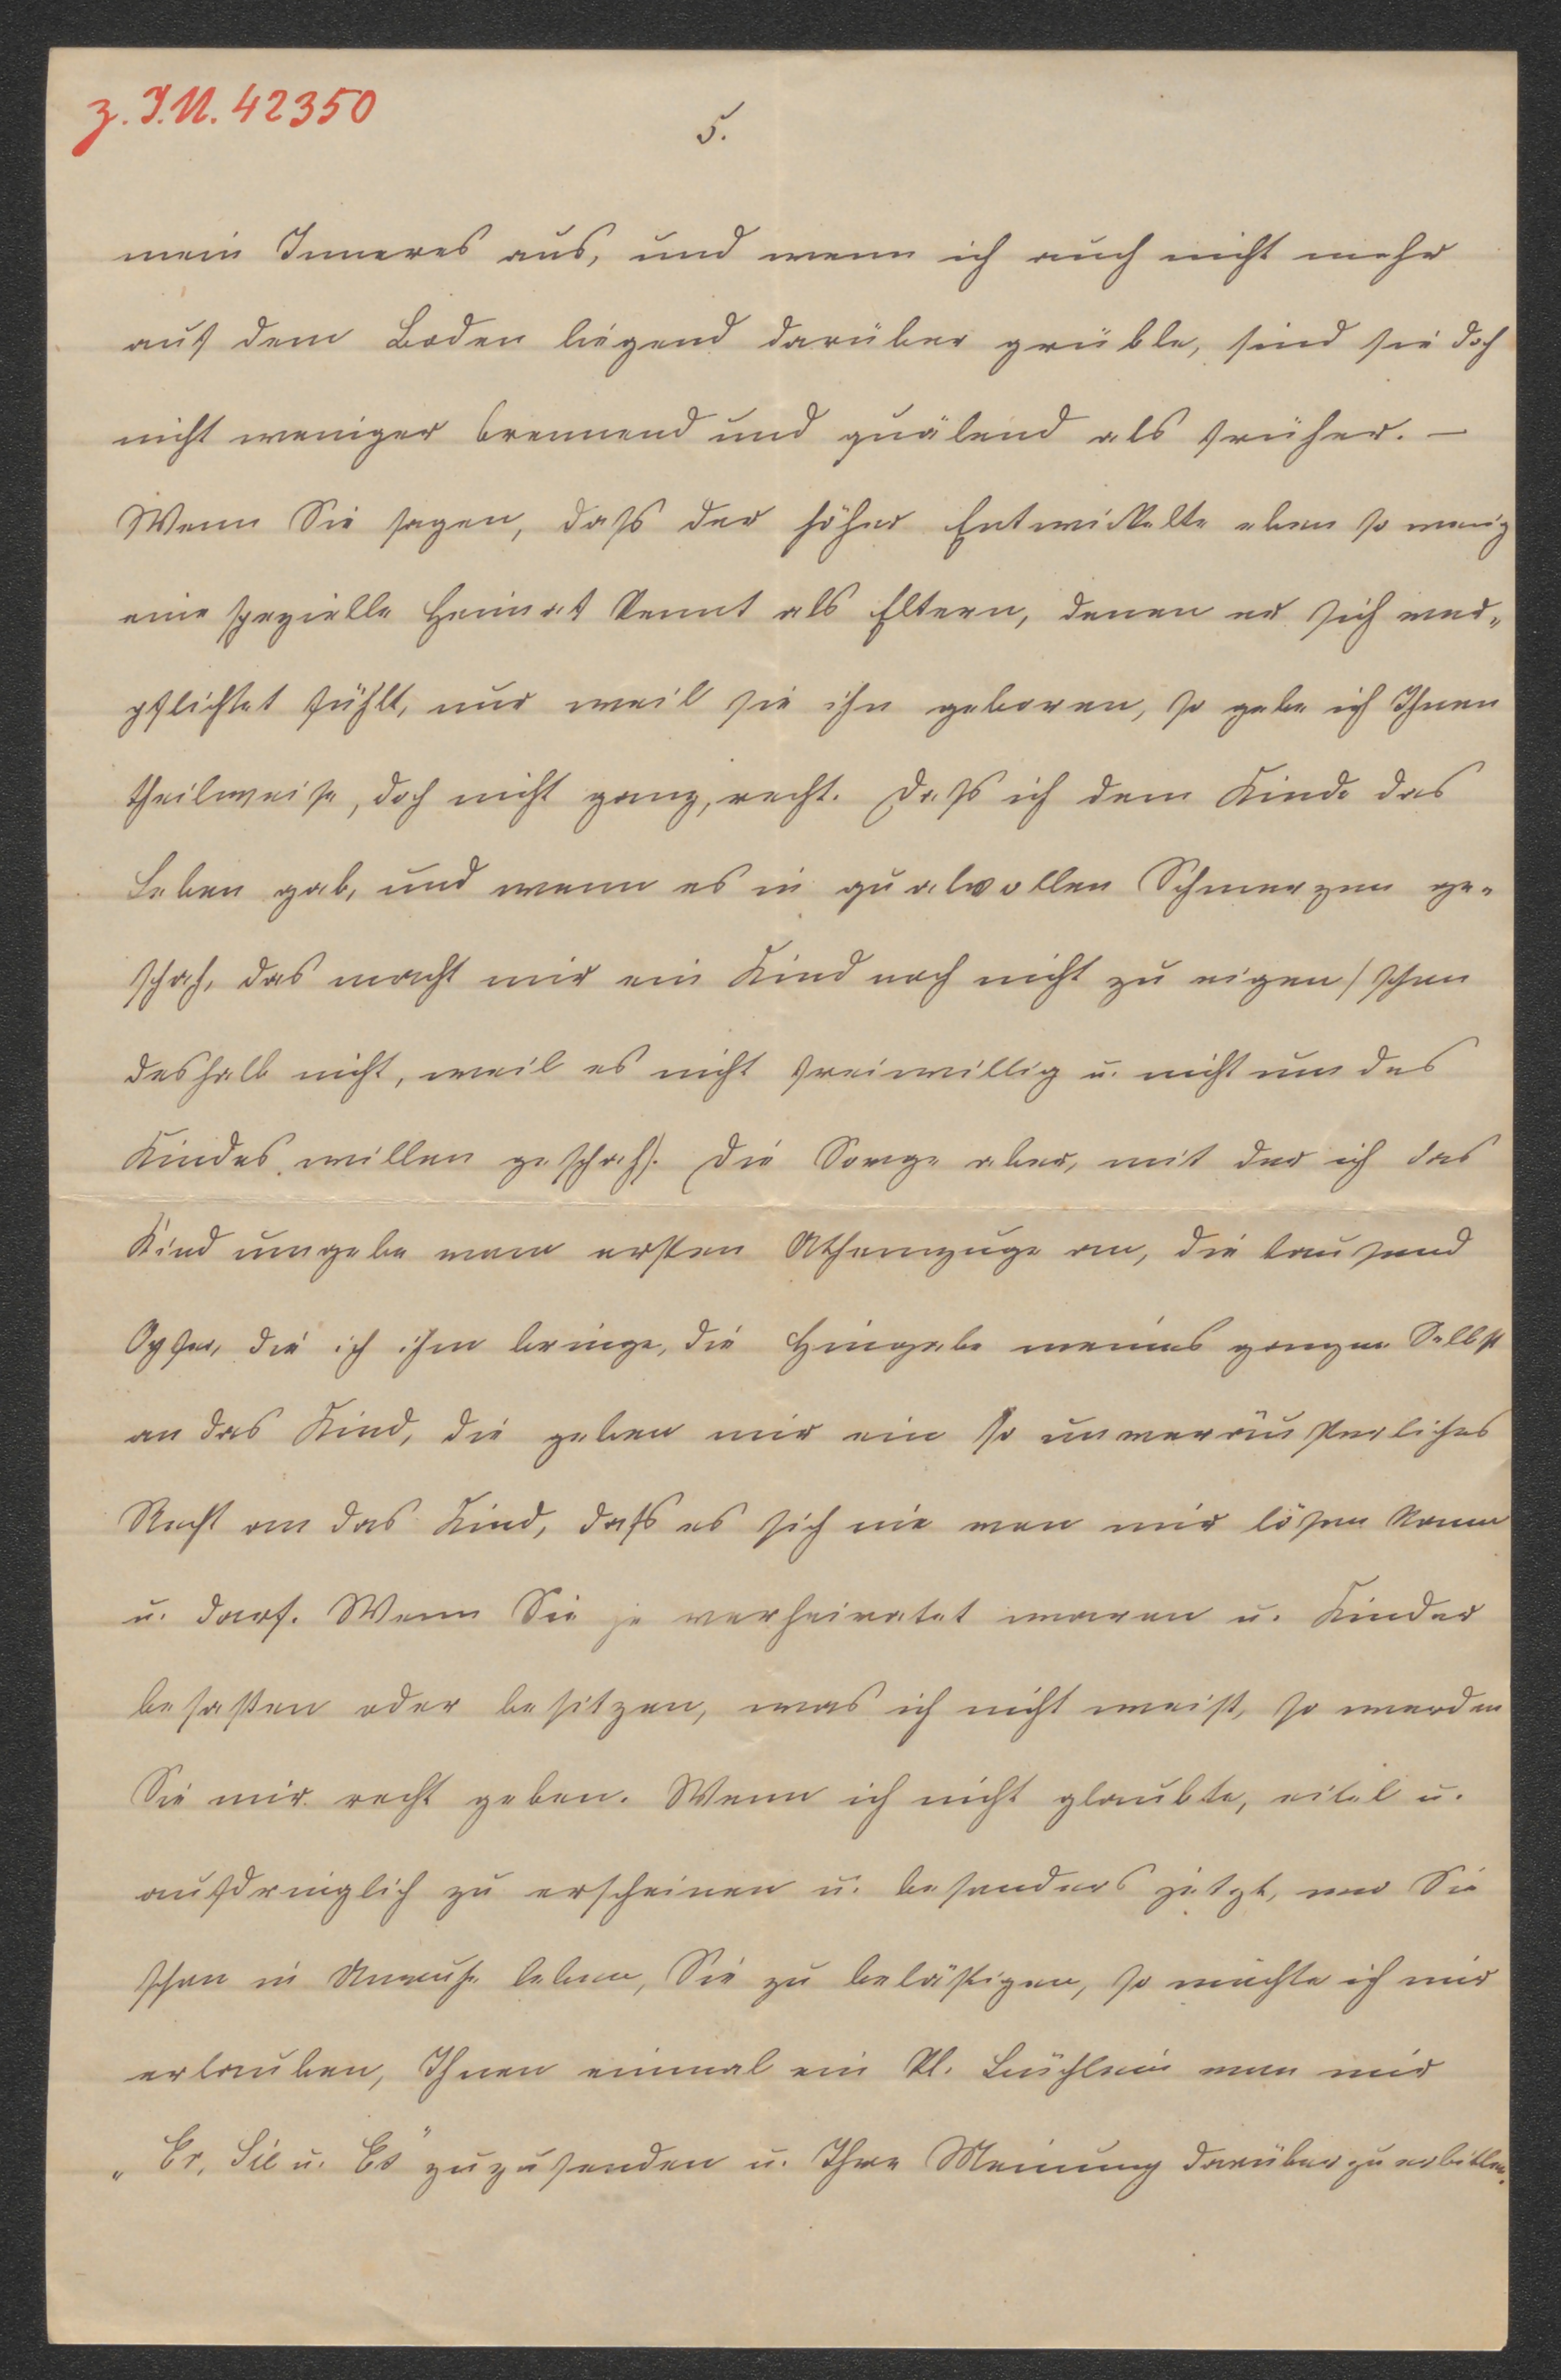 z. I.N. 42350
5.
mein Inneres aus, und wenn ich auch nicht mehr
auf dem Boden liegend darüber grüble, sind sie doch
nicht weniger brennend und quälend als früher. –
Wenn Sie sagen, dass der höher Entwickelte eben so wenig
eine spezielle Heimat kennt als Eltern, denen er sich ver-
pflichtet fühlt, nur weil sie ihn geboren, so gebe ich Ihnen
theilweise, doch nicht ganz, recht. Dass ich dem Kinde das
Leben gab, und wenn es in qualvollen Schmerzen ge-
schah, das macht mir ein Kind noch nicht zu eigen (schon
deshalb nicht, weil es nicht freiwillig u. nicht um des
Kindes willen geschah). Die Sorge aber, mit der ich das
Kind umgebe vom ersten Athemzuge an, die tausend
Opfer, die ich ihm bringe, die Hingabe meines ganzen Selbst
an das Kind, die geben mir ein so unveräusserliches
Recht an das Kind, dass es sich nie von mir lösen kann
u. darf. Wenn Sie je verheiratet waren u. Kinder
besaßen oder besitzen, was ich nicht weiß, so werden
Sie mir recht geben. Wenn ich nicht glaubte, eitel u.
aufdringlich zu erscheinen u. besonders jetzt, wo Sie
schon in Unruhe leben, Sie zu belästigen, so möchte ich mir
erlauben, Ihnen einmal ein kl. Büchlein von mir
„Er, Sie u. Es" zuzusenden u. Ihre Meinung darüber zu erbitten.